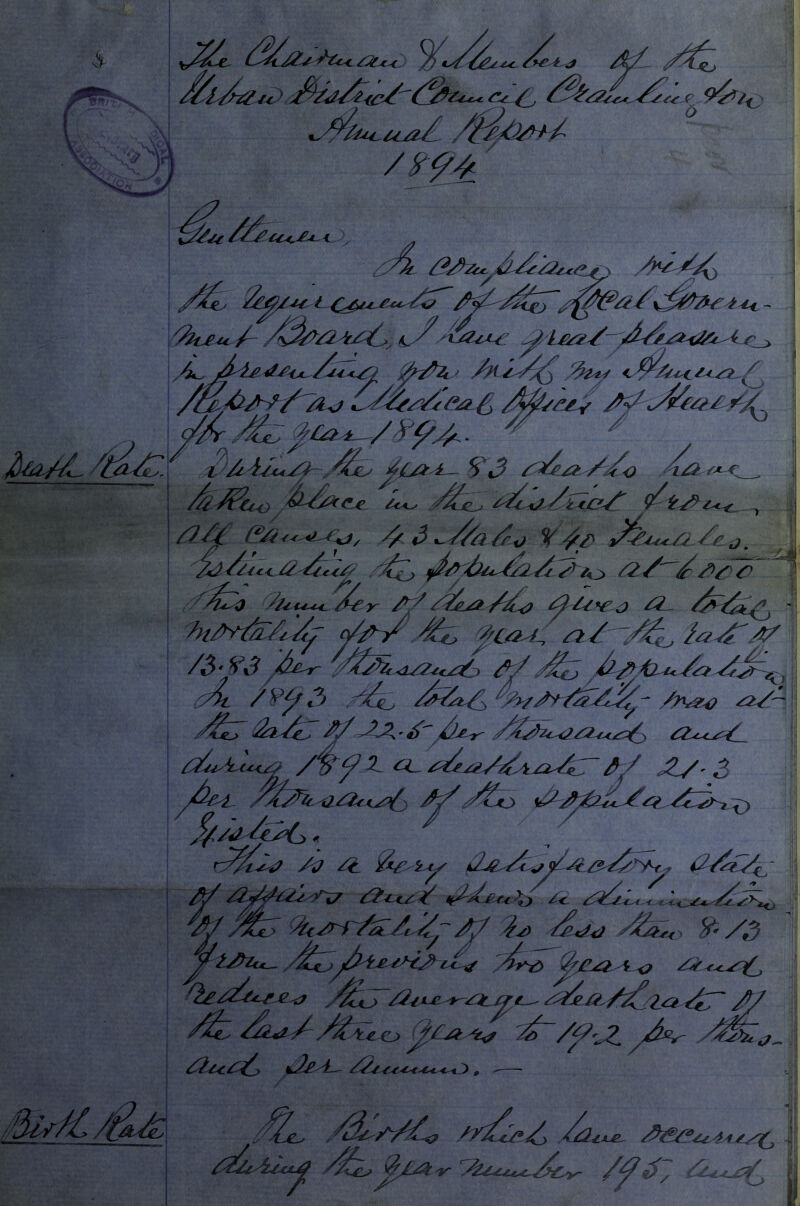 The Chairman & Members of the
Urban District Council Cramlington
Annual Report
1894
BRITISH MEDICAL
LIBRARY
ASSOCIATION
Gentlemen,
In compliance with
the requirements of the Local Govern-
ment Board, I have great pleasure
in presenting you with my Annual
Report as Medical Officer of Health
for the year 1894.
Death Rate.
During the year 83 deaths have
taken place in the district from
all causes, 43 Males & 40 Females.
Estimating the population at 6000
this number of deaths gives a total
mortality for the year at the rate of
13.83 per thousand of the population
In 1893 the total mortality was at
the rate of 22.5 per thousand and
during 1892 a deathrate of 21.3
per thousand of the population
Existed.
This is a very satisfactory state
of affairs and shews a diminution
of the mortality of no less than 8.13
from the previous two years and
reduces the average deathrate of
the last three years to 19.2 per thous-
and per annum. —
Birth Rate
The Births which have occurred
during the year number 195, and